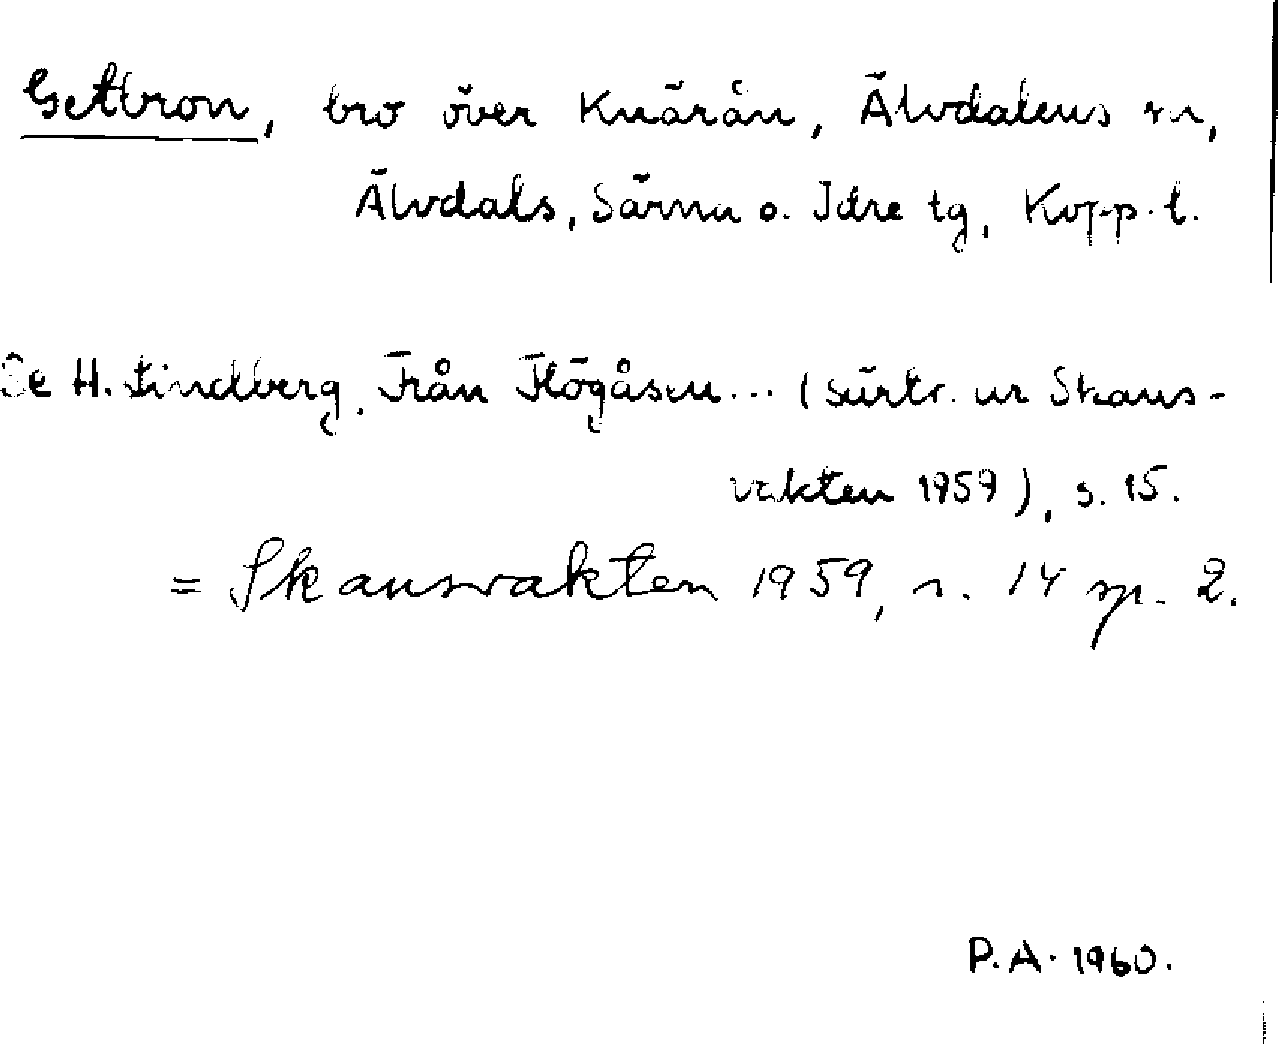 Getbron, bro över Knärån, Älvdalens sn,
Älvdals, Särna o. Idre tg, Kopp. l.
Se H. Lindberg, Från Högåsen... (särtr. ur Skans-
vakten 1959), s. 15.
= Skansvakten 1959, s. 14 sp. 2.
P.A. 1960.